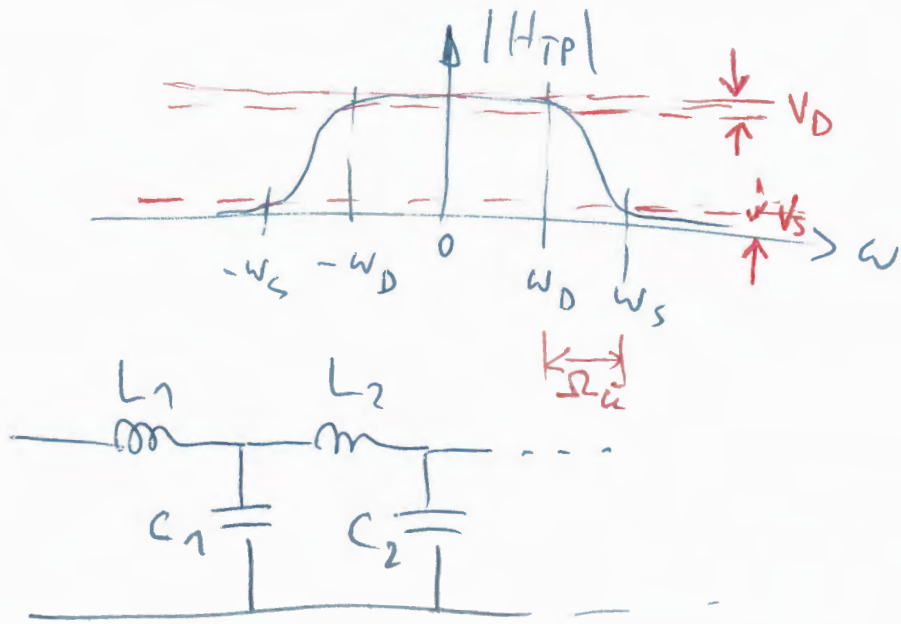 |H_TP|
V_D
V_S
-ω_S -ω_D 0 ω_D ω_S ω
Ω_ü
L_1 L_2
C_1 C_2